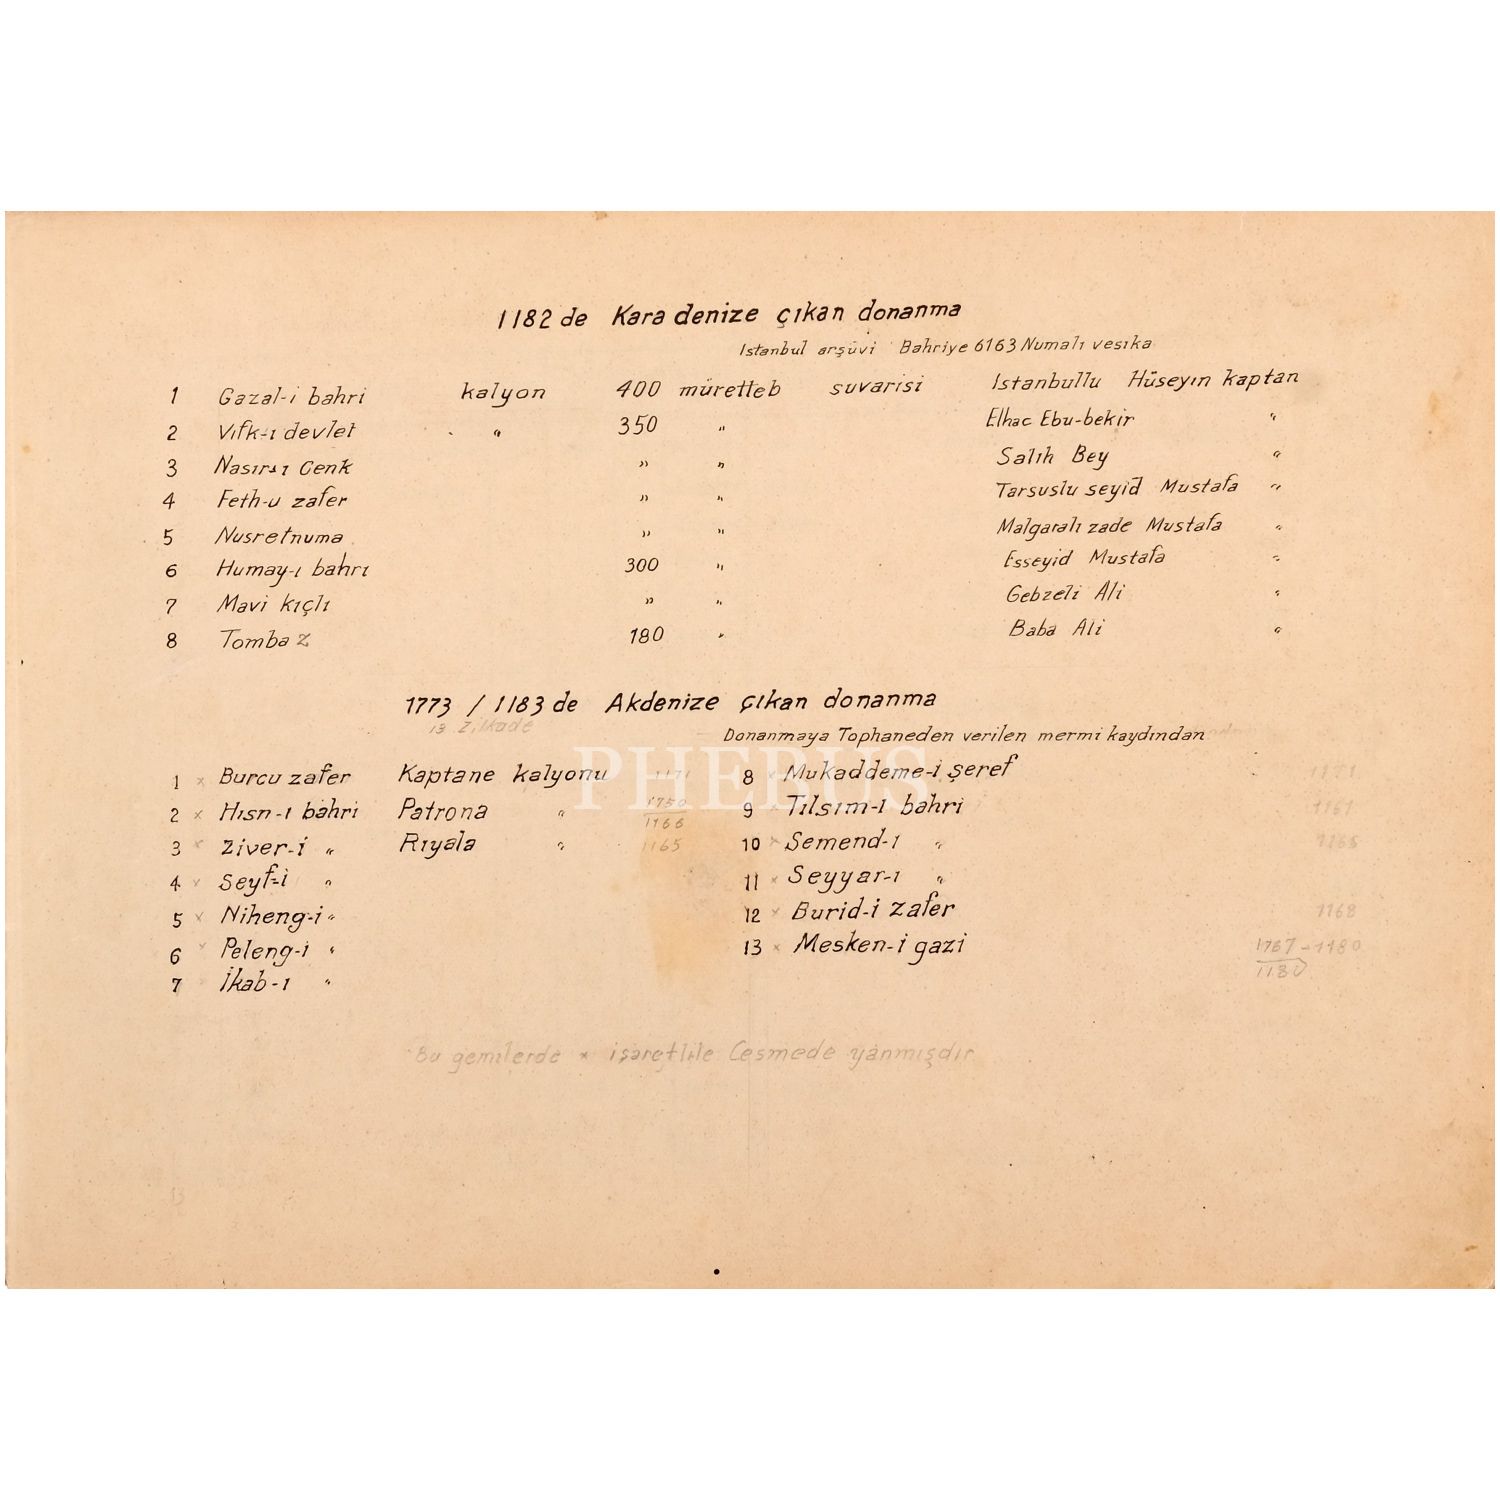 1182 de Kara denize çıkan donanma
Istanbul arşüvi Bahriye 6163 Numalı vesika
1 Gazal-i bahri kalyon 400 müretteb suvarisi Istanbullu Hüseyın kaptan
2 Vıfk-ı devlet " 350 " Elhac Ebu-bekir "
3 Nasır-ı Cenk " " Salıh Bey "
4 Feth-u zafer " " Tarsuslu seyid Mustafa "
5 Nusretnuma " " Malgaralı zade Mustafa "
6 Humay-ı bahrı 300 " Esseyid Mustafa "
7 Mavi kıçlı " " Gebzeli Ali "
8 Tombaz 180 " Baba Ali "
1773 / 1183 de Akdenize çıkan donanma
13 Zilkade
Donanmaya Tophaneden verilen mermi kaydından
PHEBUS
1 x Burcu zafer Kaptane kalyonu 1171
2 x Hısn-ı bahri Patrona " 1750
1166
3 x Ziver-i " Rıyala " 1165
4 x Seyf-i "
5 x Niheng-i "
6 x Peleng-i "
7 x İkab-ı "
8 x Mukaddeme-i şeref 1171
9 x Tılsım-ı bahri 1161
10 x Semend-ı " 1165
11 x Seyyar-ı "
12 x Burid-i zafer 1168
13 x Mesken-i gazi 1767-1180
1180
Bu gemilerde x işaretlile Cesmede yanmışdır
13